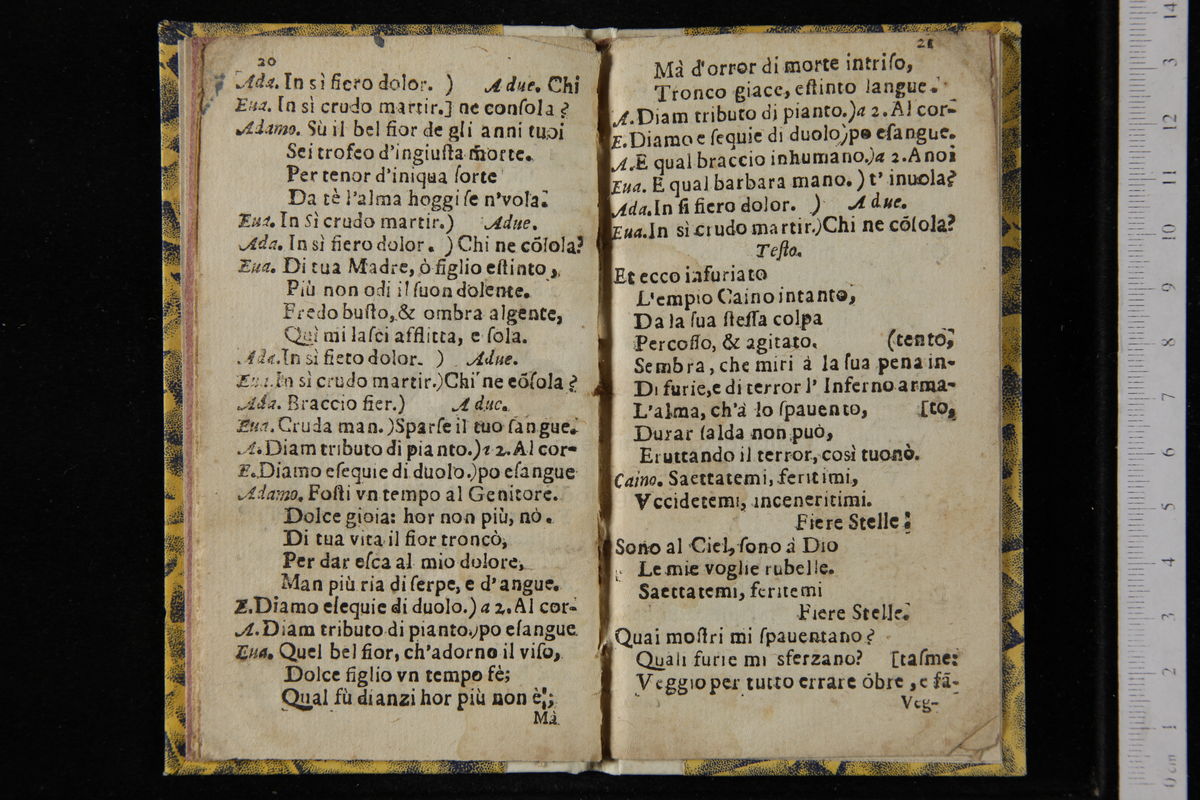 20
Ada. In sì fiero dolor. ) A due. Chi
Eua. In sì crudo martir.] ne conſola?
Adamo. Sù il bel fior de gli anni tuoi
Sei trofeo d'ingiuſta morte.
Per tenor d'iniqua ſorte
Da tè l'alma hoggi ſe n'vola.
Eua. In Sì crudo martir.) Adue.
Ada. In sì fiero dolor. ) Chi ne cõſola?
Eua. Di tua Madre, ò figlio eſtinto,
Più non odi il ſuon dolente.
Fredo buſto, & ombra algente,
Quì mi laſci afflitta, e ſola.
Ada. In sì fieto dolor. ) Adue.
Eua. In sì crudo martir.) Chi ne cõſola?
Ada. Braccio fier.) A due.
Eua. Cruda man.) Sparſe il tuo ſangue.
A. Diam tributo di pianto.) a 2. Al cor-
E. Diamo eſequie di duolo.) po eſangue
Adamo. Foſti vn tempo al Genitore.
Dolce gioia: hor non più, nò.
Di tua vita il fior troncò,
Per dar eſca al mio dolore,
Man più ria di ſerpe, e d'angue.
E. Diamo eſequie di duolo.) a 2. Al cor-
A. Diam tributo di pianto.) po eſangue
Eua. Quel bel fior, ch'adorno il viſo,
Dolce figlio vn tempo fè;
Qual fù dianzi hor più non è;
Mà
21
Mà d'orror di morte intriſo,
Tronco giace, eſtinto langue.
A. Diam tributo di pianto.) a 2. Al cor-
E. Diamo e ſequie di duolo) po eſangue.
A. E qual braccio inhumano.) a 2. A noi
Eua. E qual barbara mano. ) t' inuola?
Ada. In ſi fiero dolor. ) A due.
Eua. In sì crudo martir.) Chi ne cõſola?
Teſto.
Et ecco infuriato
L'empio Caino intanto,
Da la ſua ſteſſa colpa
Percoſſo, & agitato. (tento,
Sembra, che miri à la ſua pena in-
Di furie, e di terror l' Inferno arma-
L'alma, ch'à lo ſpauento, [to,
Durar ſalda non può,
Eruttando il terror, così tuonò.
Caino. Saettatemi, feritimi,
Vccidetemi, inceneritimi.
Fiere Stelle.
Sono al Ciel, ſono à Dio
Le mie voglie rubelle.
Saettatemi, feritemi
Fiere Stelle.
Quai moſtri mi ſpauentano?
Quali furie mi sferzano? [taſme:
Veggio per tutto errare õbre, e fã-
Veg-